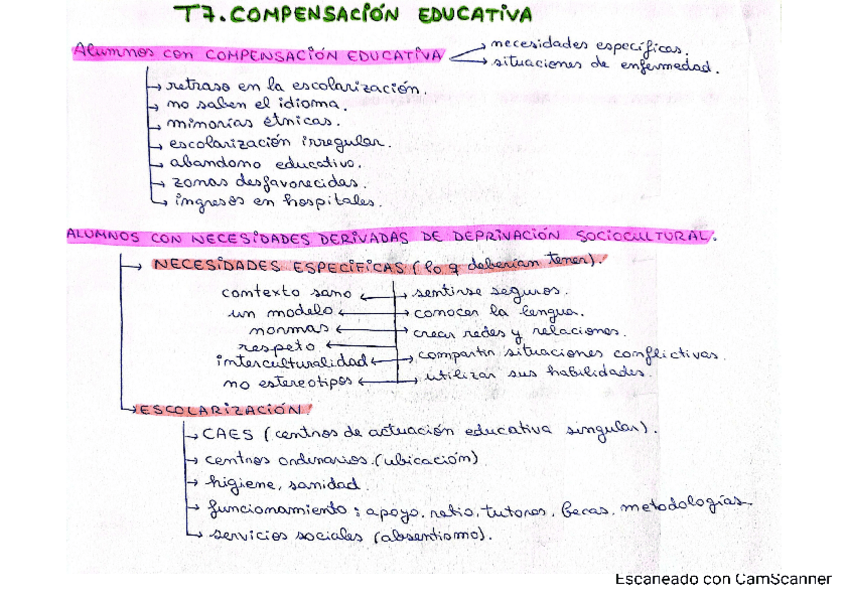 T7. COMPENSACIÓN EDUCATIVA
Alumnos con COMPENSACIÓN EDUCATIVA
necesidades específicas.
situaciones de enfermedad.
retraso en la escolarización.
no saben el idioma.
minorías étnicas.
escolarización irregular.
abandono educativo.
zonas desfavorecidas.
ingresos en hospitales.
ALUMNOS CON NECESIDADES DERIVADAS DE DEPRIVACIÓN SOCIOCULTURAL.
NECESIDADES ESPECÍFICAS (lo q deberían tener).
contexto sano
sentirse seguros.
un modelo
conocer la lengua.
normas
crear redes y relaciones.
respeto
interculturalidad
compartir situaciones conflictivas.
no estereotipos
utilizar sus habilidades.
ESCOLARIZACIÓN
CAES (centros de actuación educativa singular).
centros ordinarios (ubicación)
higiene, sanidad.
funcionamiento: apoyo, ratio, tutores, becas, metodologías.
servicios sociales (absentismo).
Escaneado con CamScanner